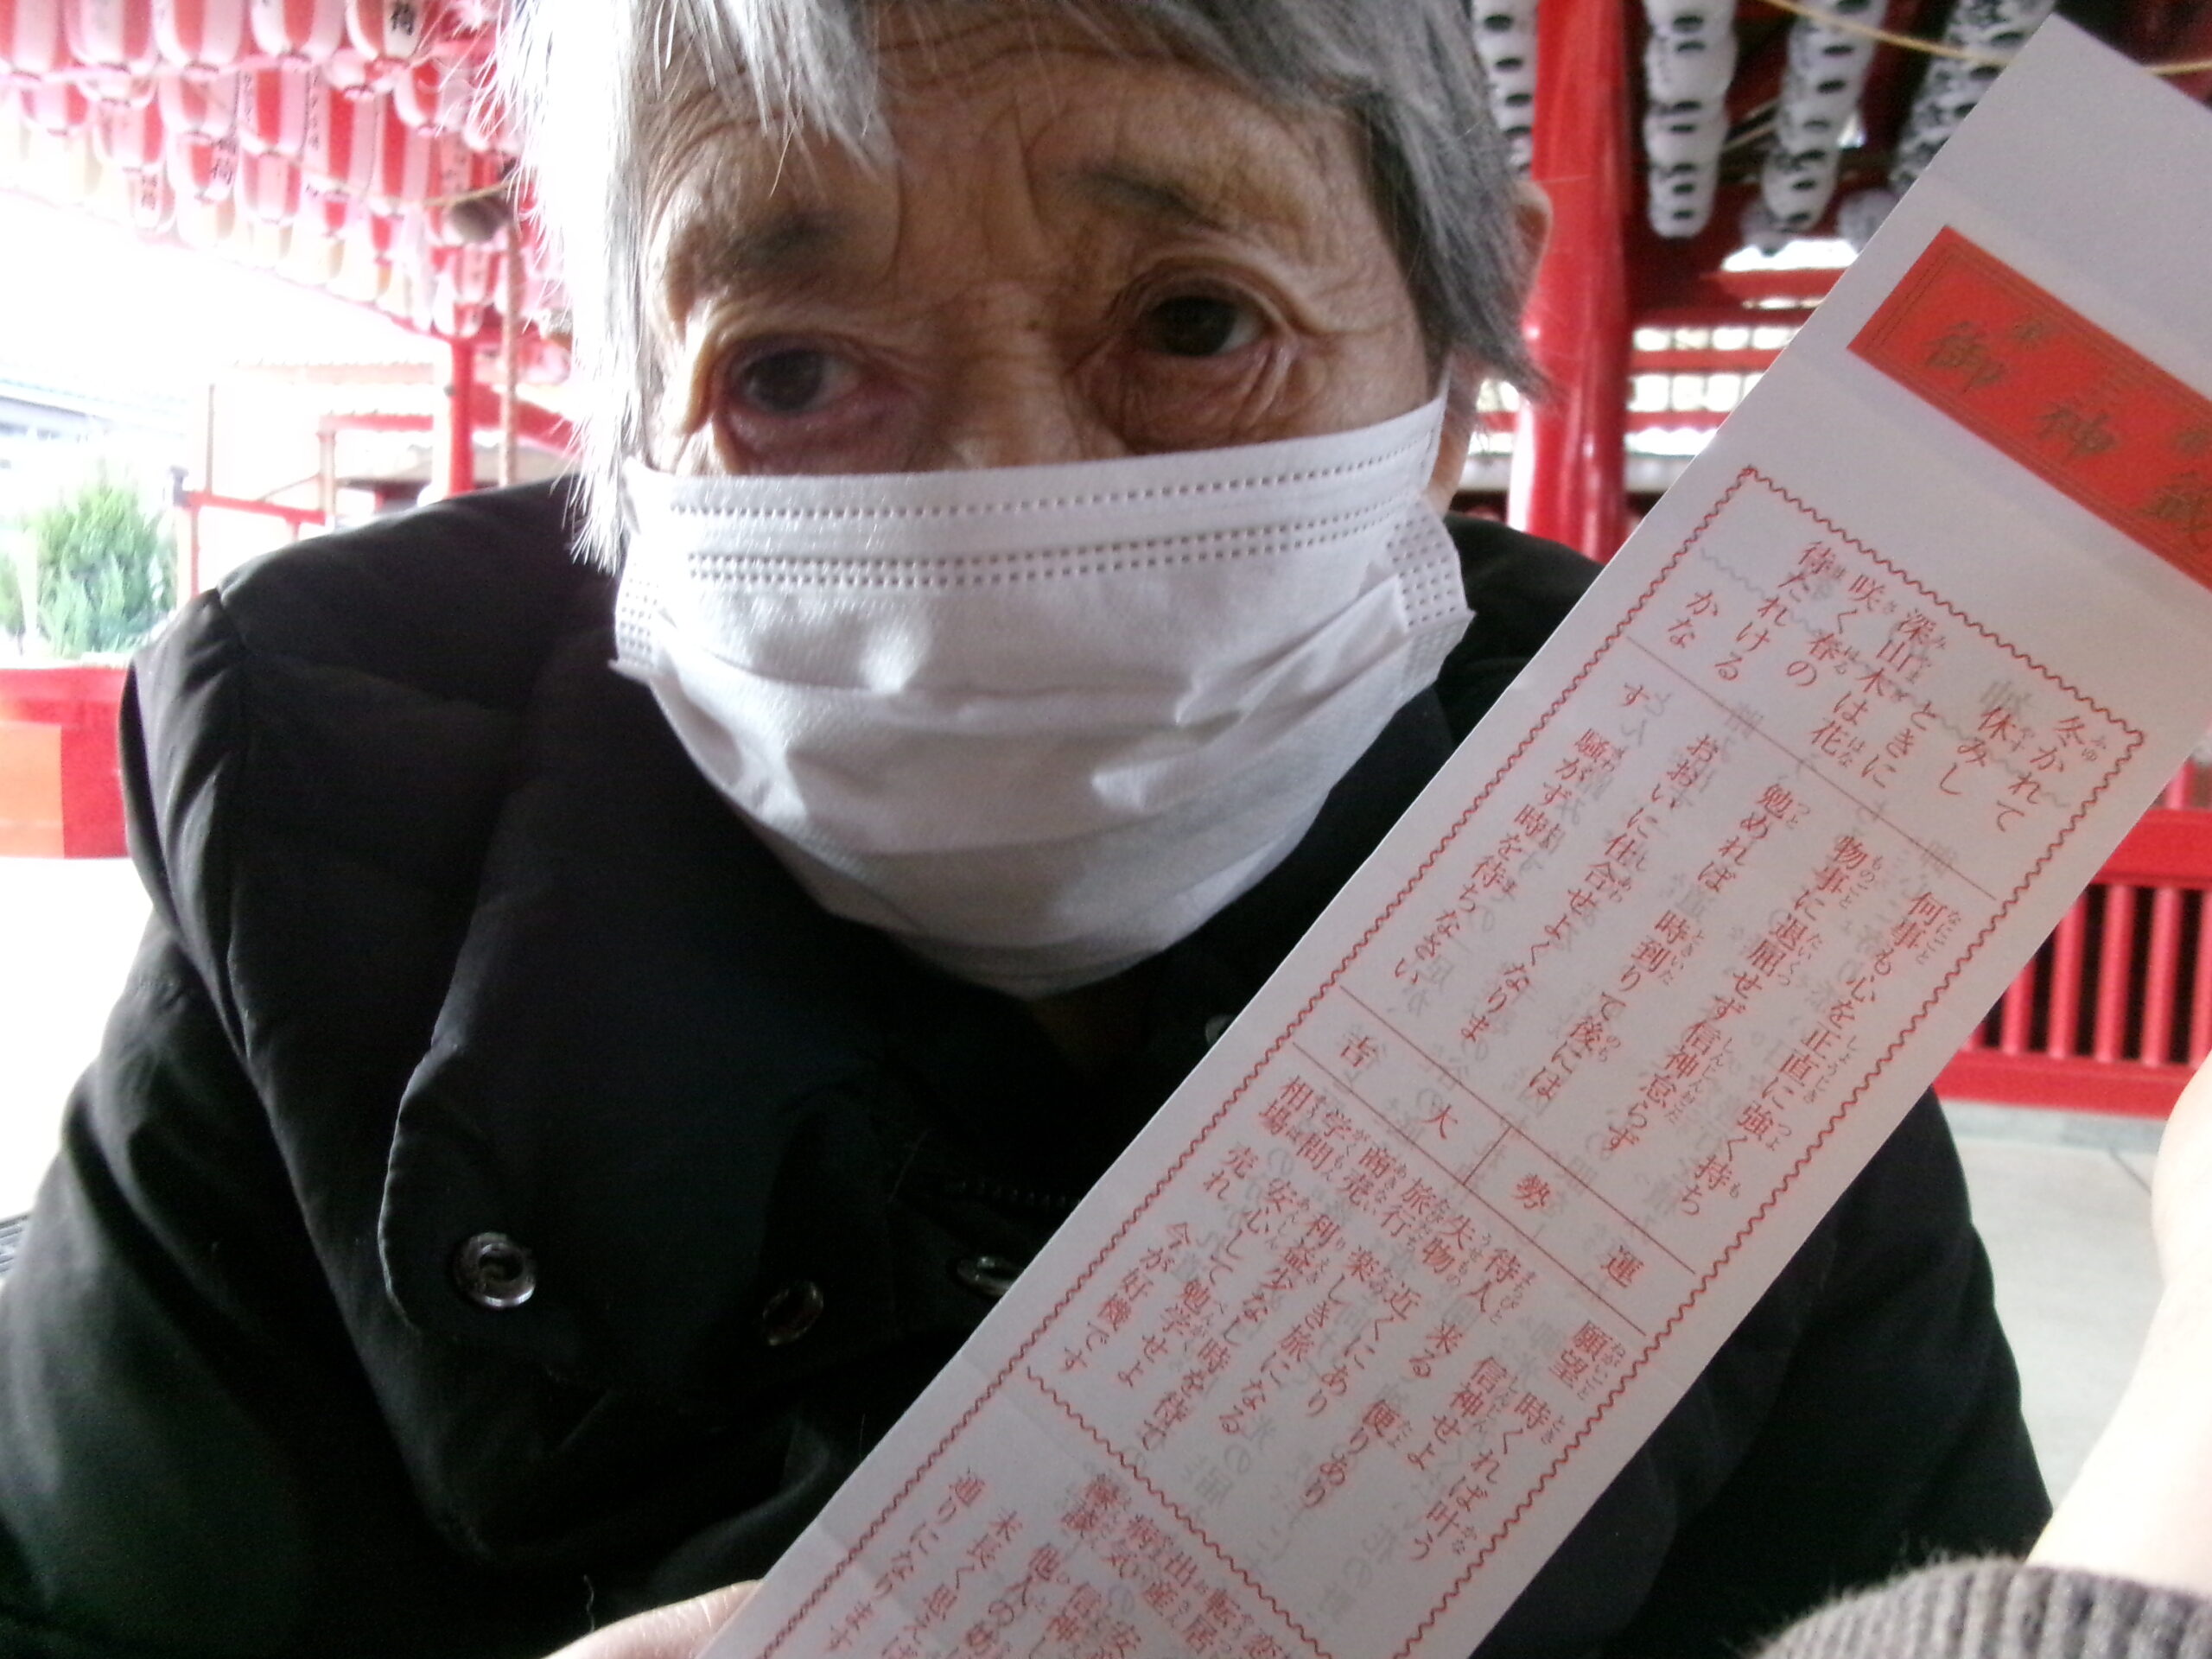 御神籤
冬かれて
休みし
ときに
深山木は花
咲く春の
待たれける
かな
何事も心を正直に強く持ち
物事に退屈せず信神怠らず
勉めれば 時到りて後には
おおいに仕合せよくなりま
す
騒がず時を待ちなさい
運勢 大吉
願望 時くれば叶う
信神せよ
待人 来る 便りあり
失物 近くにあり
旅行 楽しき旅になる
商売 利益少なし時を待て
学問 安心して勉学せよ
相場 売れ 今が好機です
転居
出産
病気 信神
縁談 他人の
末長く思えば
通りになります
荷